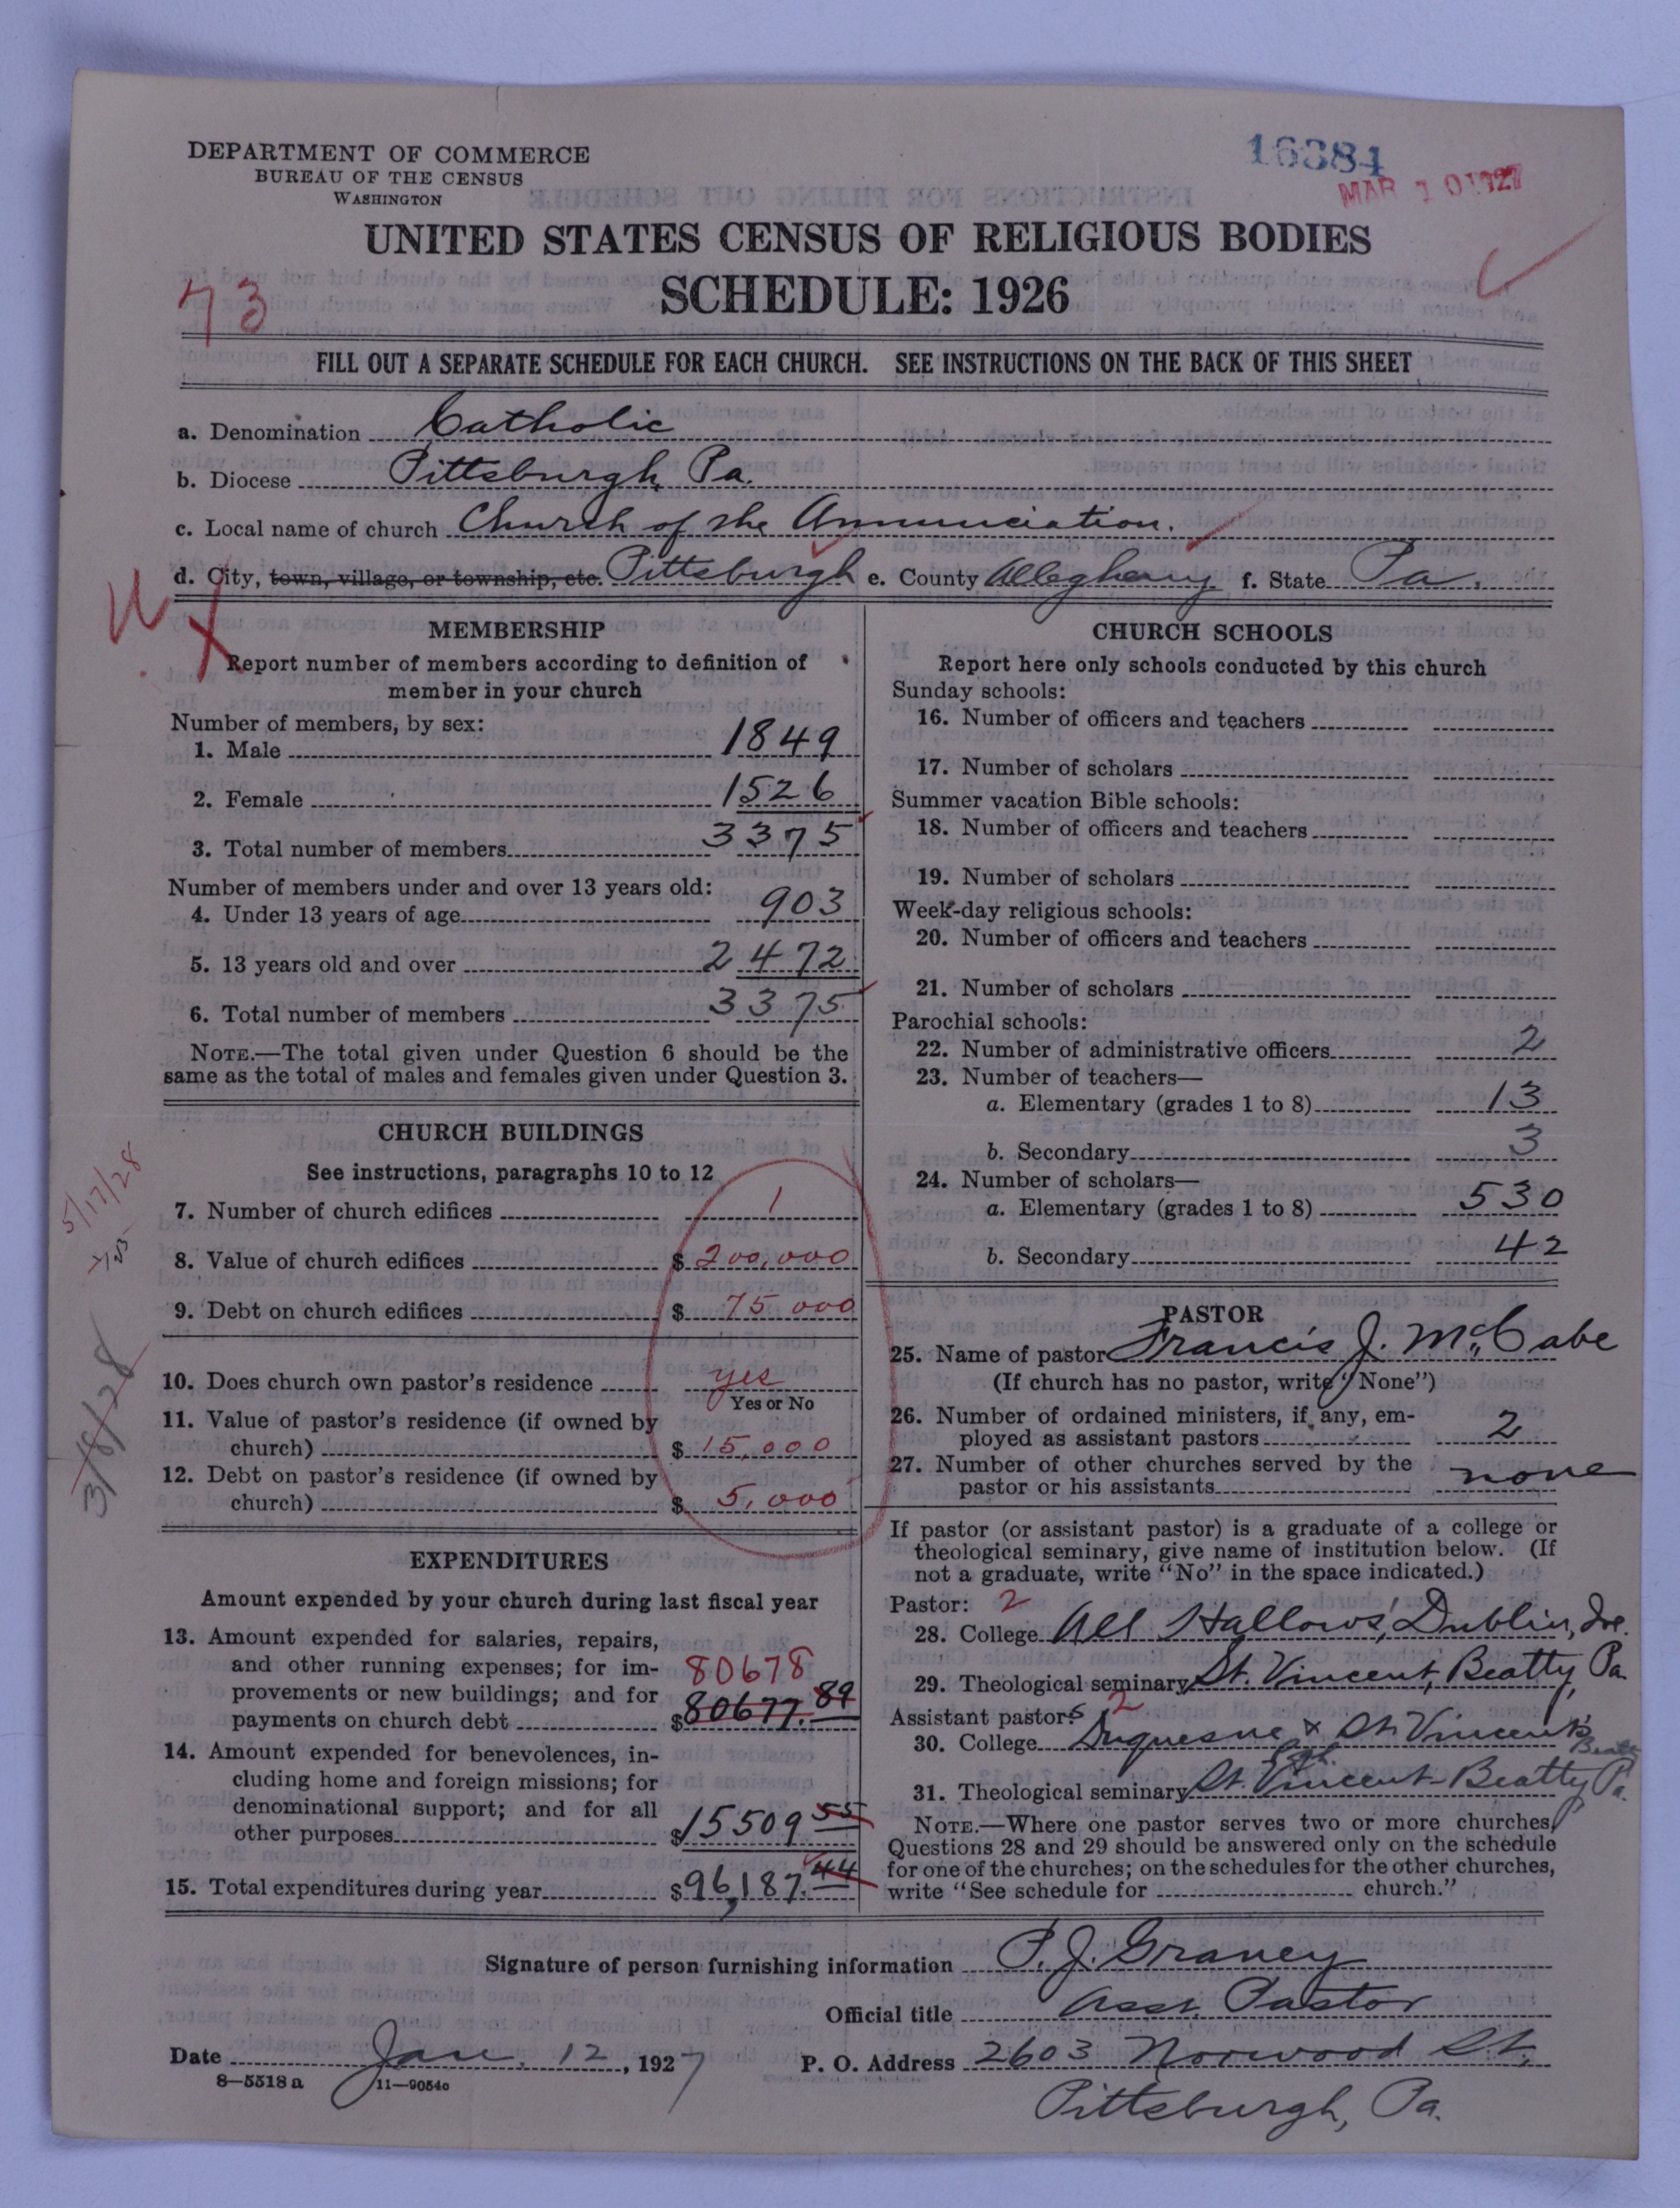 DEPARTMENT OF COMMERCE
BUREAU OF THE CENSUS
WASHINGTON
16384
MAR 10 1927
UNITED STATES CENSUS OF RELIGIOUS BODIES
SCHEDULE: 1926
73
FILL OUT A SEPARATE SCHEDULE FOR EACH CHURCH. SEE INSTRUCTIONS ON THE BACK OF THIS SHEET
a. Denomination Catholic
b. Diocese Pittsburgh, Pa.
c. Local name of church Church of the Annunciation.
d. City, town, village, or township, etc. Pittsburgh e. County Allegheny f. State Pa.
MEMBERSHIP
Report number of members according to definition of
member in your church
Number of members, by sex:
1. Male 1849
2. Female 1526
3. Total number of members 3375
Number of members under and over 13 years old:
4. Under 13 years of age 903
5. 13 years old and over 2472
6. Total number of members 3375
NOTE.—The total given under Question 6 should be the
same as the total of males and females given under Question 3.
CHURCH BUILDINGS
See instructions, paragraphs 10 to 12
7. Number of church edifices 1
8. Value of church edifices $ 200,000
9. Debt on church edifices $ 75,000
10. Does church own pastor's residence yes
Yes or No
11. Value of pastor's residence (if owned by
church) $ 15,000
12. Debt on pastor's residence (if owned by
church) $ 5,000
5/17/28
3/8/28
EXPENDITURES
Amount expended by your church during last fiscal year
13. Amount expended for salaries, repairs,
and other running expenses; for im-
80678
provements or new buildings; and for
payments on church debt $80677.89
14. Amount expended for benevolences, in-
cluding home and foreign missions; for
denominational support; and for all
other purposes $15509 55
15. Total expenditures during year $96,187.44
CHURCH SCHOOLS
Report here only schools conducted by this church
Sunday schools:
16. Number of officers and teachers
17. Number of scholars
Summer vacation Bible schools:
18. Number of officers and teachers
19. Number of scholars
Week-day religious schools:
20. Number of officers and teachers
21. Number of scholars
Parochial schools:
22. Number of administrative officers 2
23. Number of teachers—
a. Elementary (grades 1 to 8) 13
b. Secondary 3
24. Number of scholars—
a. Elementary (grades 1 to 8) 530
b. Secondary 42
PASTOR
25. Name of pastor Francis J. McCabe
(If church has no pastor, write "None")
26. Number of ordained ministers, if any, em-
ployed as assistant pastors 2
27. Number of other churches served by the
pastor or his assistants none
If pastor (or assistant pastor) is a graduate of a college or
theological seminary, give name of institution below. (If
not a graduate, write "No" in the space indicated.)
Pastor: 2
28. College All Hallows', Dublin, Ire.
29. Theological seminary St. Vincent, Beatty, Pa.
Assistant pastors 2
30. College Duquesne & St. Vincent's
Beatty
31. Theological seminary St. Vincent - Beatty Pa.
NOTE.—Where one pastor serves two or more churches,
Questions 28 and 29 should be answered only on the schedule
for one of the churches; on the schedules for the other churches,
write "See schedule for church."
Signature of person furnishing information P. J. Graney
Official title Asst. Pastor
Date Jan. 12, 1927 P. O. Address 2603 Norwood St.
8—5518 a 11—9054c
Pittsburgh, Pa.